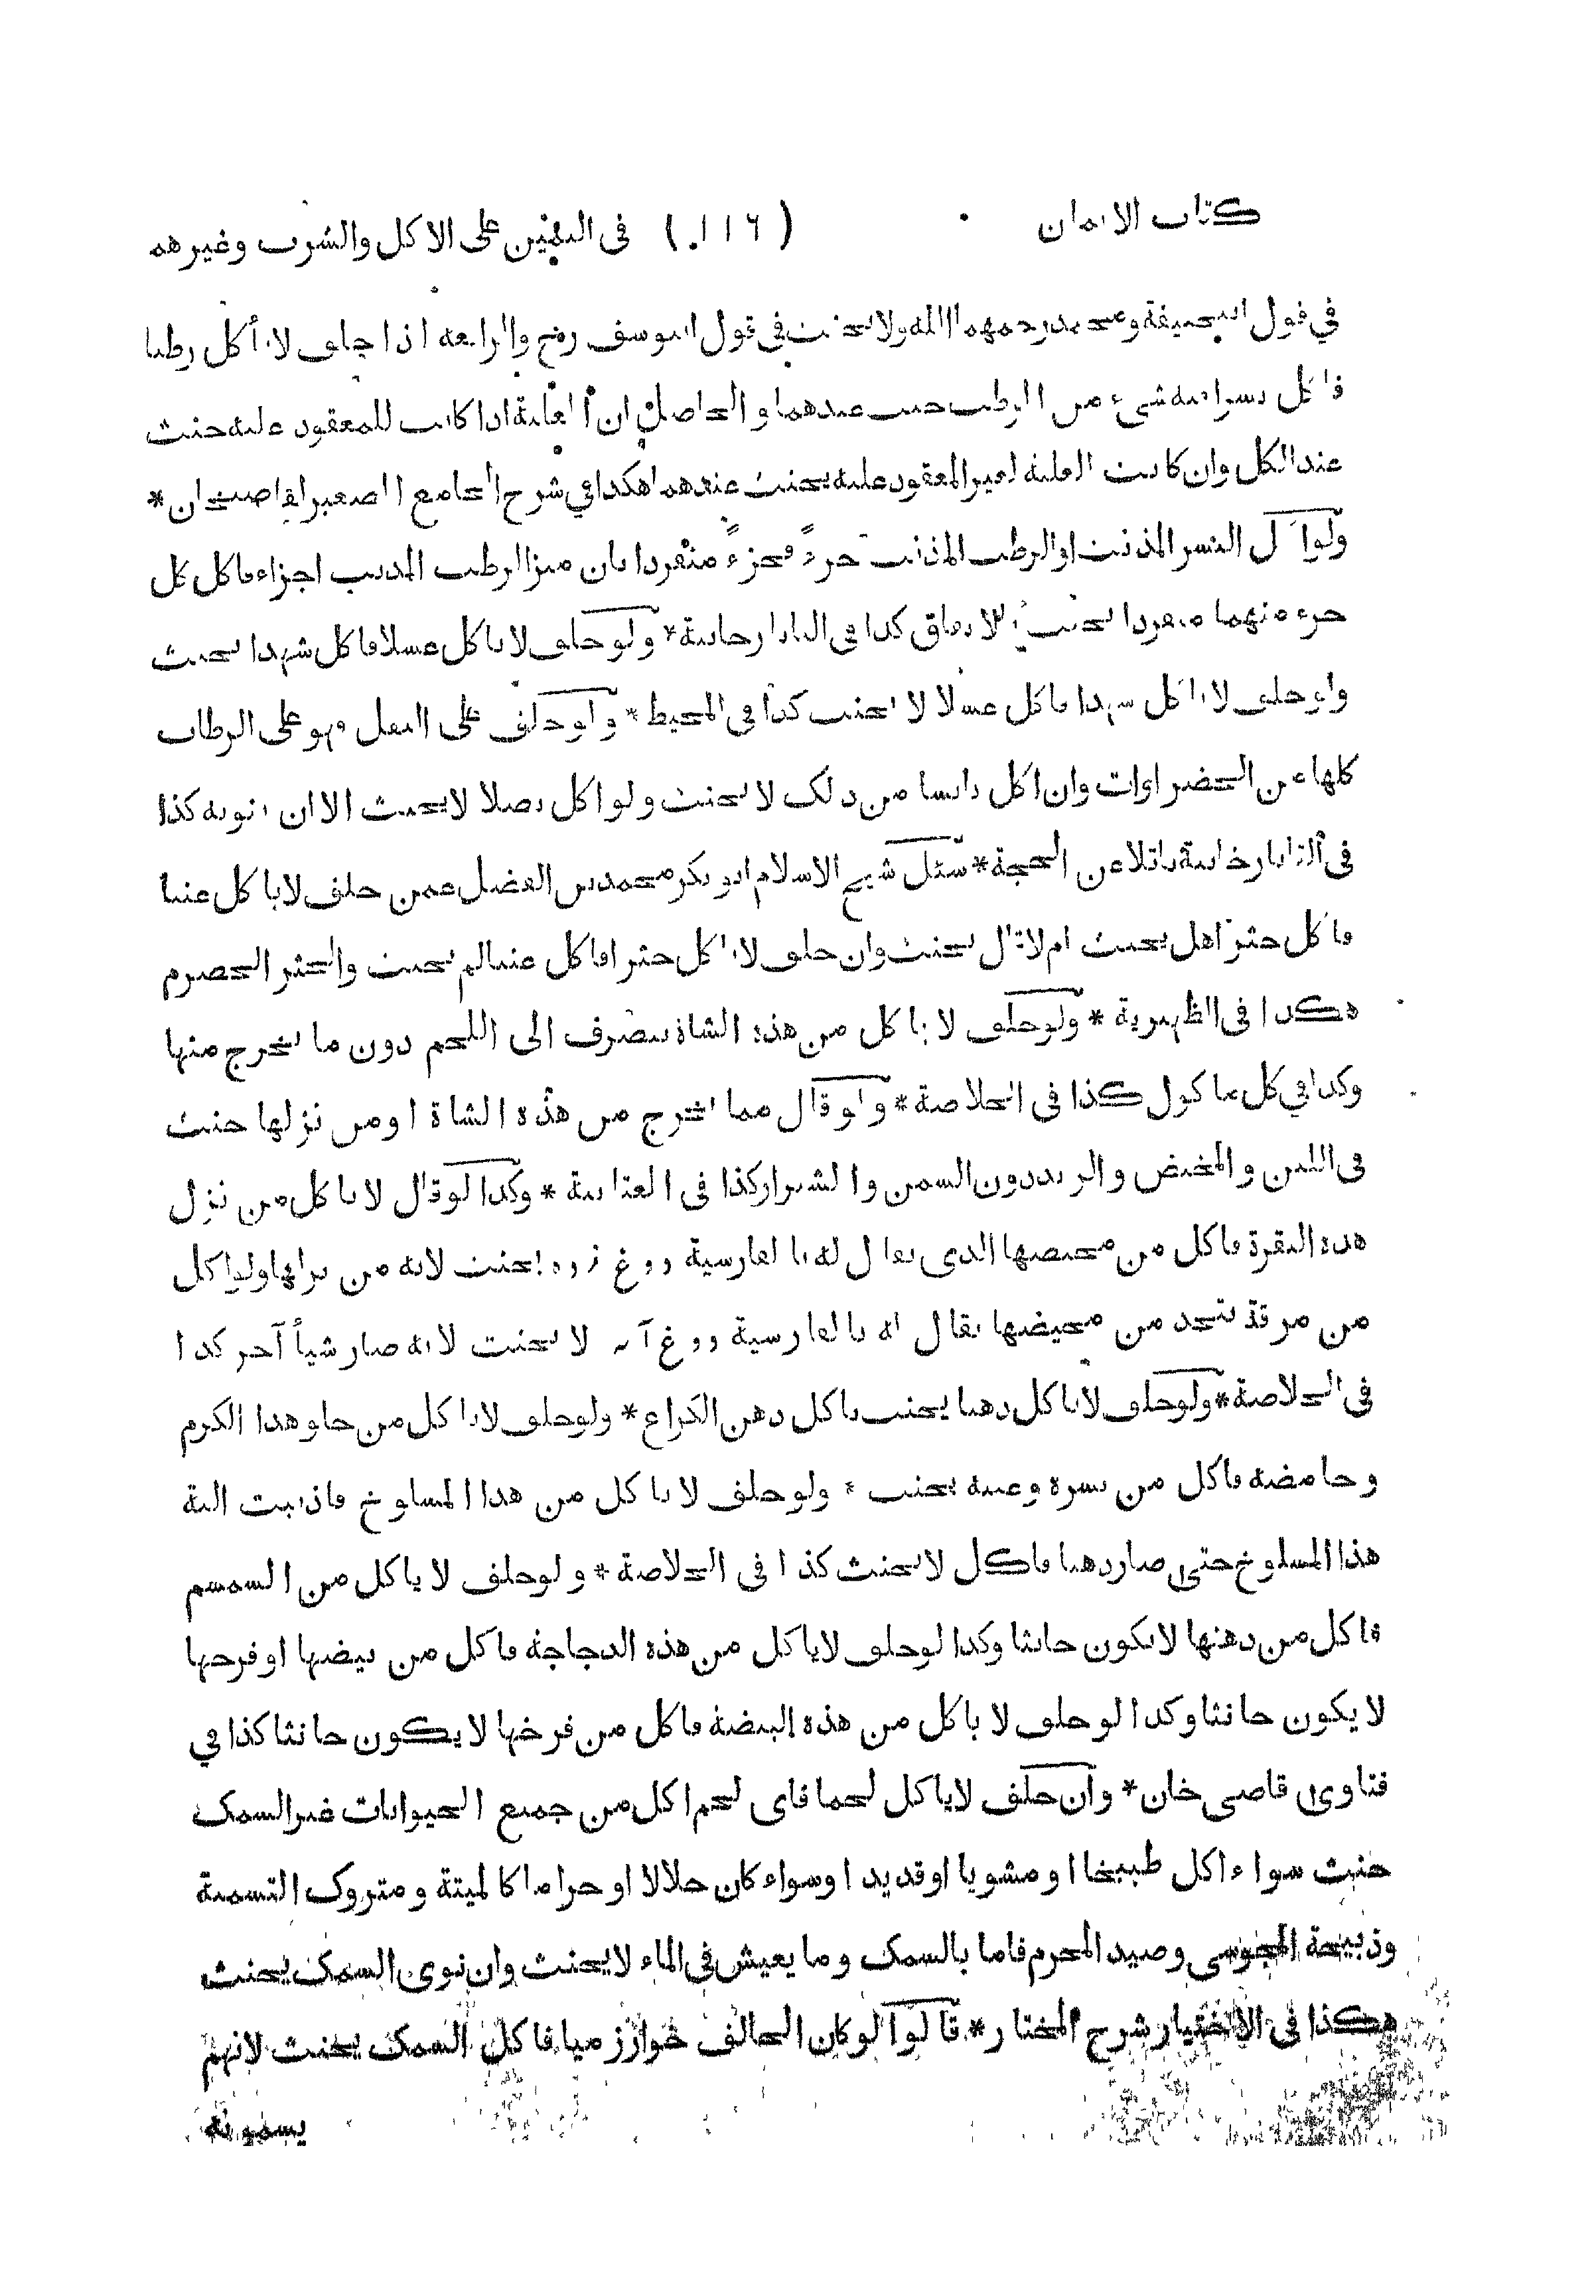 كتاب الايمان ( ١١٦ ) فى اليمين على الاكل والشرب وغيرهم
فى قول ابيحنيفة ومحمد رحمهما الله ولا يحنث فى قول ابيوسف رح والرابعة اذا حلف لا يأكل رطبا
فاكل بسرا فيه شىء من الرطب حنث عندهما والحاصل ان الغلبة اذا كانت للمعقود عليه حنث
عند الكل وان كانت الغلبة لغير المعقود عليه يحنث عندهما هكذا في شرح الجامع الصغير لقاضيخان *
ولو اكل البسر المذنب او الرطب المذنب جزءً فجزءً منفردا بان ميز الرطب المذنب اجزاء فاكل كل
جزء منهما منفردا يحنث بلا وفاق كذا فى التاتارخانية * ولو حلف لا ياكل عسلا فاكل شهدا يحنث
ولو حلف لا ياكل شهدا فاكل عسلا لا يحنث كذا فى المحيط * ولو حلف على البقل فهو على الرطاب
كلها من الخضراوات وان اكل يابسا من ذلك لا يحنث ولو اكل بصلا لا يحنث الا ان ينويه كذا
فى التاتارخانية ناقلا عن الحجة * سئل شيخ الاسلام ابو بكر محمد بن الفضل عمن حلف لا ياكل عنبا
فاكل حثرا هل يحنث ام لا قال يحنث وان حلف لا ياكل حثرا فاكل عنبا لم يحنث والحثر الحصرم
هكذا فى الظهيرية * ولو حلف لا ياكل من هذه الشاة ينصرف الى اللحم دون ما يخرج منها
وكذا في كل ماكول كذا فى الخلاصة * ولو قال مما يخرج من هذه الشاة او من نزلها حنث
فى اللبن والمخيض والزبد دون السمن والشيراز كذا فى العتابية * وكذا لو قال لا ياكل من نزل
هذه البقرة فاكل من مخيضها الذى يقال له بالفارسية دوغ زده يحنث لانه من نزلها ولو اكل
من مرقة تتخذ من مخيضها يقال له بالفارسية دوغ آبه لا يحنث لانه صار شيأ آخر كذا
فى الخلاصة * ولو حلف لا ياكل دهنا يحنث باكل دهن الكراع * ولو حلف لا ياكل من حلو هذا الكرم
وحامضه فاكل من بسره وعنبه يحنث * ولو حلف لا ياكل من هذا المسلوخ فاذيبت الية
هذا المسلوخ حتى صار دهنا فاكل لا يحنث كذا فى الخلاصة * ولو حلف لا ياكل من السمسم
فاكل من دهنها لا يكون حانثا وكذا لو حلف لا ياكل من هذه الدجاجة فاكل من بيضها او فرخها
لا يكون حانثا وكذا لو حلف لا ياكل من هذه البيضة فاكل من فرخها لا يكون حانثا كذا في
فتاوى قاضى خان * وان حلف لا ياكل لحما فاى لحم اكل من جميع الحيوانات غير السمك
حنث سواء اكل طبيخا او مشويا او قديدا وسواء كان حلالا او حراما كالميتة ومتروك التسمية
وذبيحة المجوسى وصيد المحرم فاما بالسمك وما يعيش فى الماء لا يحنث وان نوى السمك يحنث
هكذا فى الاختيار شرح المختار * قالوا لو كان الحالف خوارزميا فاكل السمك يحنث لانهم
يسمونه